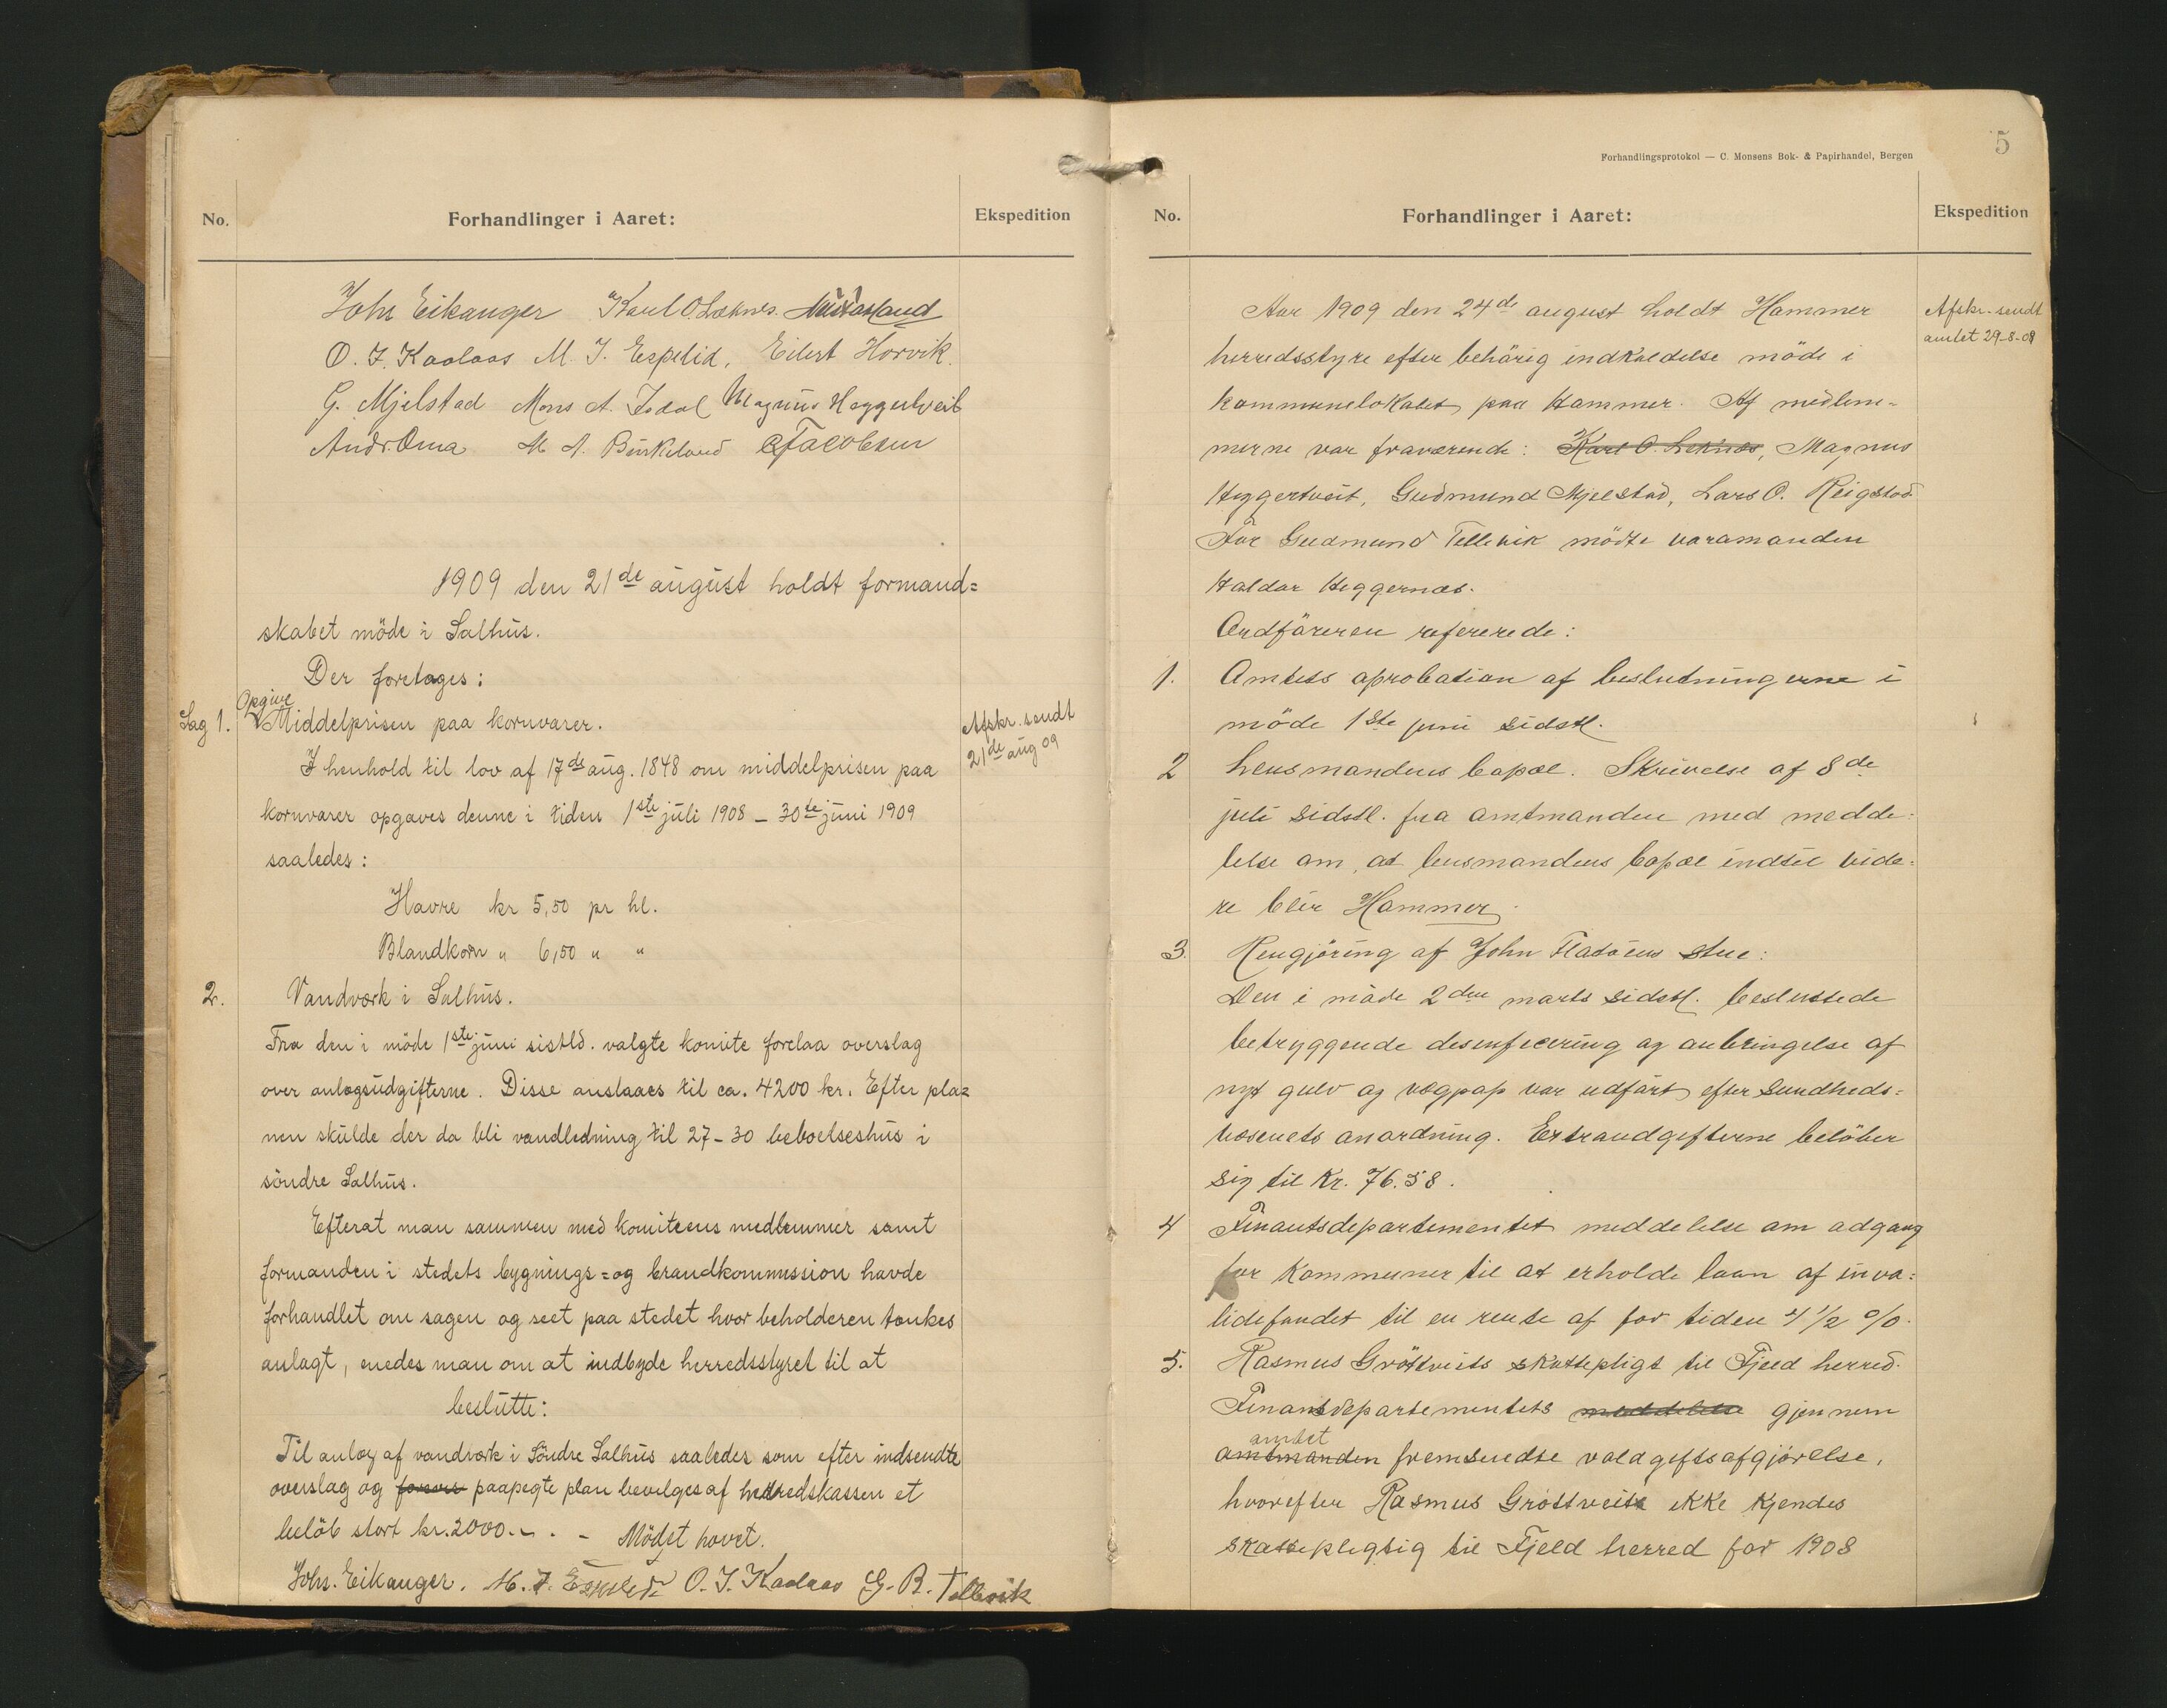 No.
Forhandlinger i Aaret:
Ekspedition
Johs Eikanger Karl O. Leknes.
O. J. Kaalaas M. J. Espelid, Eilert Horvik.
G. Mjelstad Mons A. Isdal Magnus Heggertveit
Andr. Oma M. A. Birkeland Jacobsen
1909 den 21de august holdt formand=
skabet möde i Salhus.
Der foretages:
Opgive
Sag 1. Middelprisen paa kornvarer.
Afskr. sendt
21de aug 09
I henhold til lov af 17de aug. 1848 om middelprisen paa
kornvarer opgaves denne i tiden 1ste juli 1908 – 30te juni 1909
saaledes:
Havre kr 5,50 pr hl.
Blandkorn " 6,50 " "
2. Vandværk i Salhus.
Fra den i möde 1ste juni sistld. valgte komite forelaa overslag
over anlægsudgifterne. Disse anslaaes til ca. 4200 kr. Efter pla=
nen skulde der da bli vandledning til 27–30 beboelseshus i
söndre Salhus.
Efterat man sammen med komiteens medlemmer samt
formanden i stedets bygnings= og brandkommission havde
forhandlet om sagen og seet paa stedet hvor beholderen tænkes
anlagt, enedes man om at indbyde herredsstyret til at
beslutte:
Til anlæg af vandværk i Söndre Salhus saaledes som efter indsendte
overslag og paapegte plan bevilges af herredskassen et
belöb stort kr. 2000.–. – Mödet hævet.
Johs. Eikanger. M. J. Espelid O. J. Kaalaas G. R. Tellevik
Forhandlingsprotokol — C. Monsens Bok- & Papirhandel, Bergen
5
No.
Forhandlinger i Aaret:
Ekspedition
Aar 1909 den 24de august holdt Hammer
Afskr. sendt
amtet 29-8-09
herredsstyre efter behörig indkaldelse möde i
kommunelokalet paa Hammer. Af medlem-
merne var fraværende: Karl O. Leknes, Magnus
Heggertveit, Gudmund Mjelstad, Lars O. Reigstad
For Gudmund Tellevik mödte varamanden
Haldor Heggernæs.
Ordföreren refererede:
1. Amtets aprobation af beslutningerne i
möde 1ste juni sidstl.
2 Lensmandens bopæl. Skrivelse af 8de
juli sidstl. fra amtmanden med medde=
lelse om, at lensmandens bopæl indtil vide=
re blir Hammer.
3. Rengjöring af John Flatöens stue:
Den i möde 2den marts sidstl. besluttede
betryggende desinfecering og anbringelse af
nyt gulv og vægpap var udfört efter sundheds=
væsenets anordning. Extraudgifterne belöber
sig til Kr. 76.58.
4 Finantsdepartementet meddelelse om adgang
for Kommuner til at erholde laan af inva=
lidefondet til en rente af for tiden 4 1/2 %.
5. Rasmus Gröttveits skattepligt til Fjeld herred.
Finansdepartementets meddelelse gjennem
amtet
amtmanden fremsendte voldgiftsafgjörelse,
hvorefter Rasmus Gröttveit ikke kjendes
skattepligtig til Fjeld herred for 1908